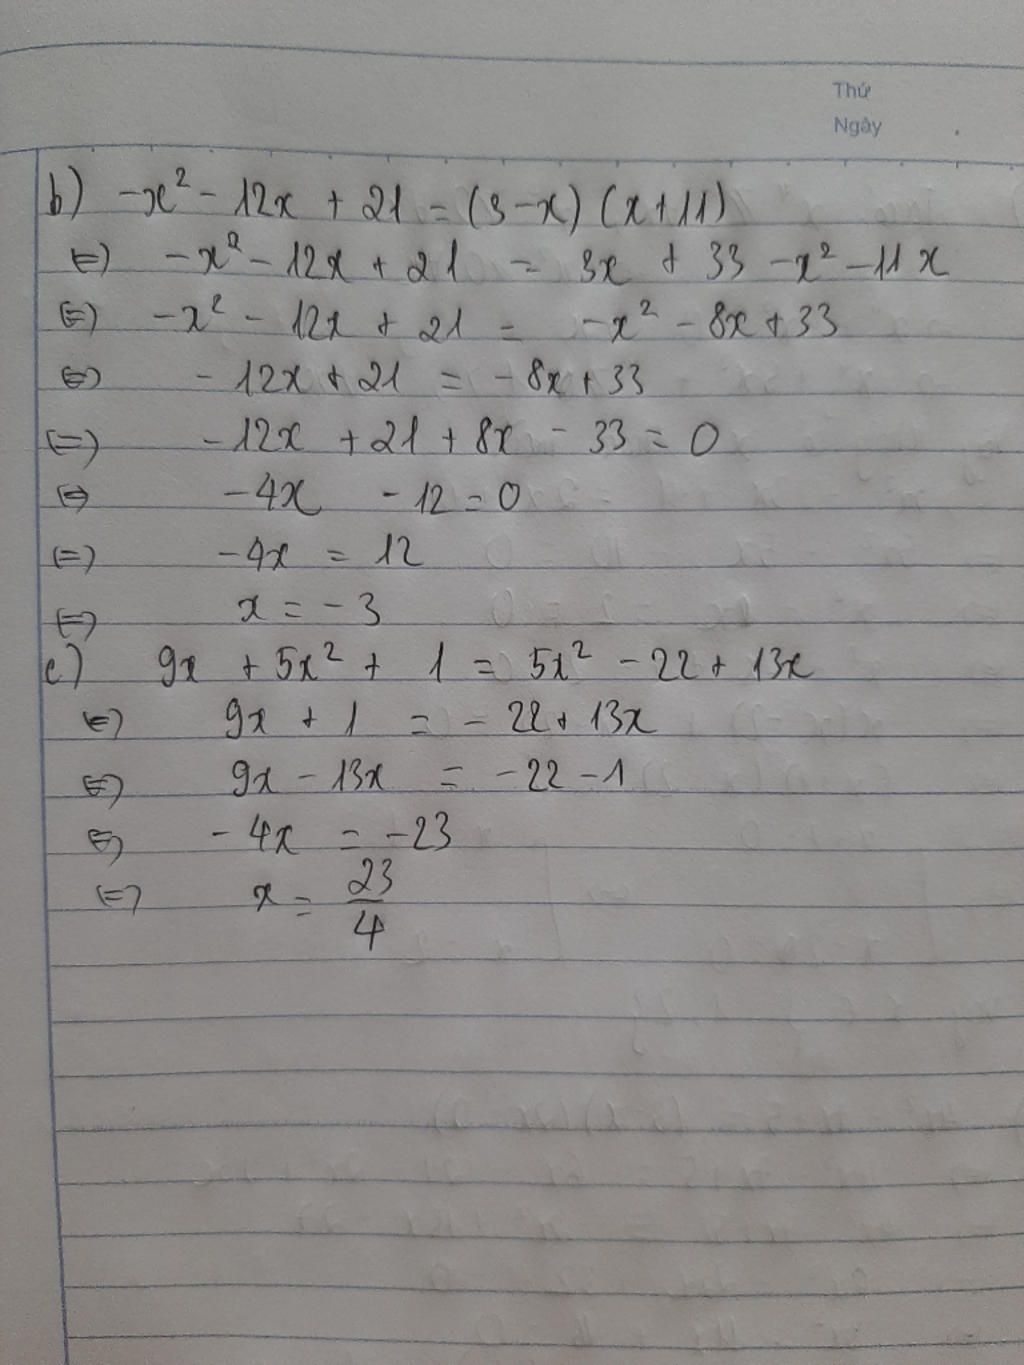 Thứ
Ngày
b) -x² - 12x + 21 = (3-x) (x+11)
⇔ -x² - 12x + 21 = 3x + 33 - x² - 11x
⇔ -x² - 12x + 21 = -x² - 8x + 33
⇔ -12x + 21 = -8x + 33
⇔ -12x + 21 + 8x - 33 = 0
⇔ -4x - 12 = 0
⇔ -4x = 12
⇔ x = -3
c) 9x + 5x² + 1 = 5x² - 22 + 13x
⇔ 9x + 1 = -22 + 13x
⇔ 9x - 13x = -22 - 1
⇔ -4x = -23
⇔ x = 23/4